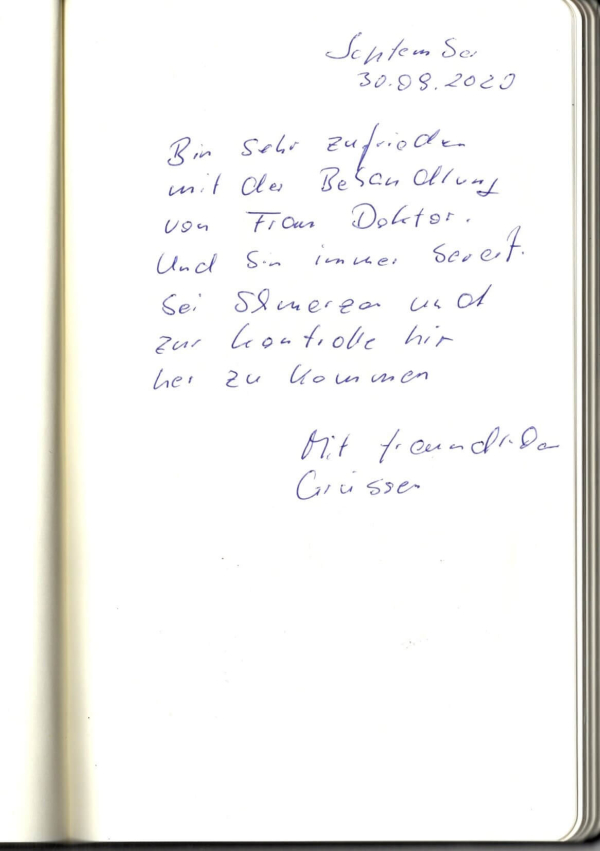 September
30.09.2020
Bin sehr zufrieden
mit der Behandlung
von Frau Doktor.
Und bin immer bereit.
bei Schmerzen und
zur Kontrolle hir
her zu kommen
Mit freundlichen
Grüssen